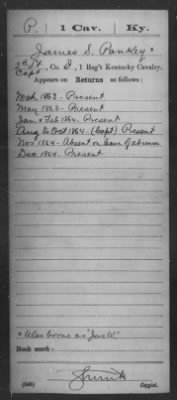 P. | 1 Cav. | Ky.
James S. Pankey *
2d Lt
Capt, Co. D, 1 Reg't Kentucky Cavalry.
Appears on Returns as follows:
Mch 1863 - Present
May 1863 - Present
Jan & Feb 1864 - Present
Aug to Oct 1864 - (Capt) Present
Nov 1864 - Absent on leave of absence
Dec 1864 - Present
* Also borne as "Jas W."
Book mark:
Copyist.